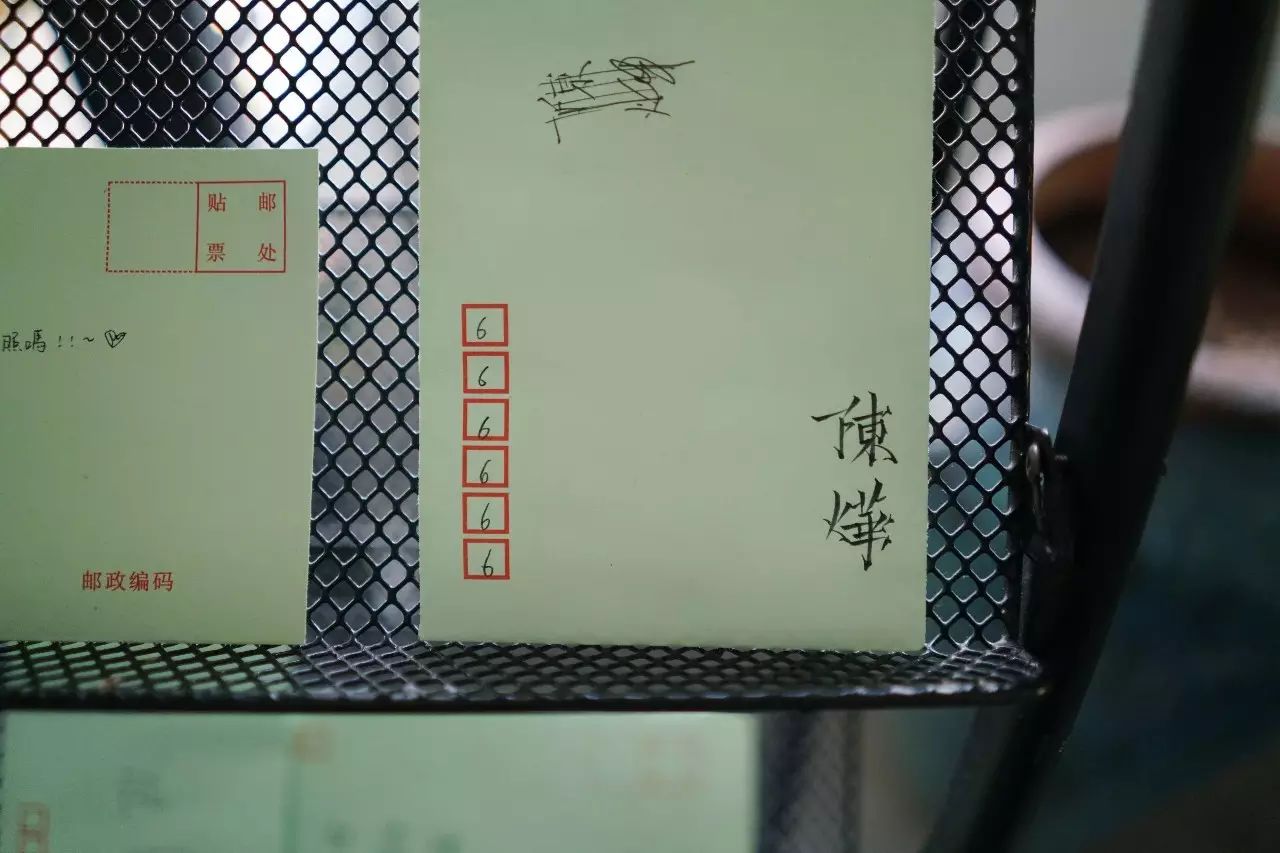 贴 邮
票 处
照嗎!!~
邮政编码
6
6
6
6
6
6
陳
燁